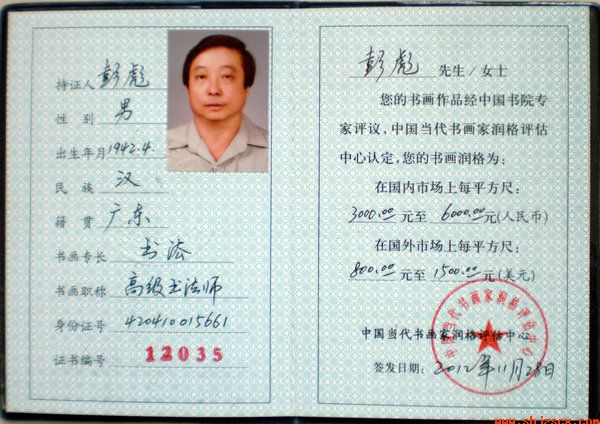 持证人 彭彪
性别 男
出生年月 1942.4.
民族 汉
籍贯 广东
书画专长 书法
书画职称 高级书法师
身份证号 420410015661
证书编号 12035
彭彪 先生/女士
您的书画作品经中国书院专
家评议,中国当代书画家润格评估
中心认定,您的书画润格为:
在国内市场上每平方尺:
3000.00 元至 6000.00 元(人民币)
在国外市场上每平方尺:
800.00 元至 1500.00 元(美元)
中国当代书画家润格评估中心
中国当代书画家润格评估中心
签发日期: 2012年11月28日